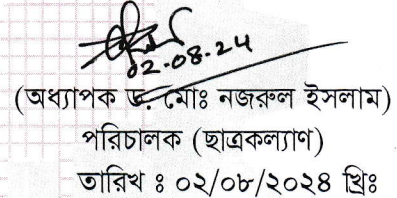 02.08.24
(অধ্যাপক ড. মোঃ নজরুল ইসলাম)
পরিচালক (ছাত্রকল্যাণ)
তারিখ ঃ ০২/০৮/২০২৪ খ্রিঃ